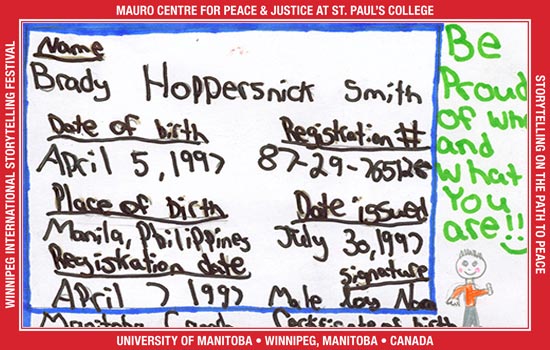 MAURO CENTRE FOR PEACE & JUSTICE AT ST. PAUL'S COLLEGE
WINNIPEG INTERNATIONAL STORYTELLING FESTIVAL
Name
Brady Hoppersnick Smith
Date of birth
April 5, 1997
Registration #
87-29-765128
Place of birth
Manila, Philippines
Date issued
July 30, 1997
Registration date
April 7 1997
signature
Male
Manitoba
Certificate of birth
Be
Proud
of
and
what
You
are!!
STORYTELLING ON THE PATH TO PEACE
UNIVERSITY OF MANITOBA • WINNIPEG, MANITOBA • CANADA